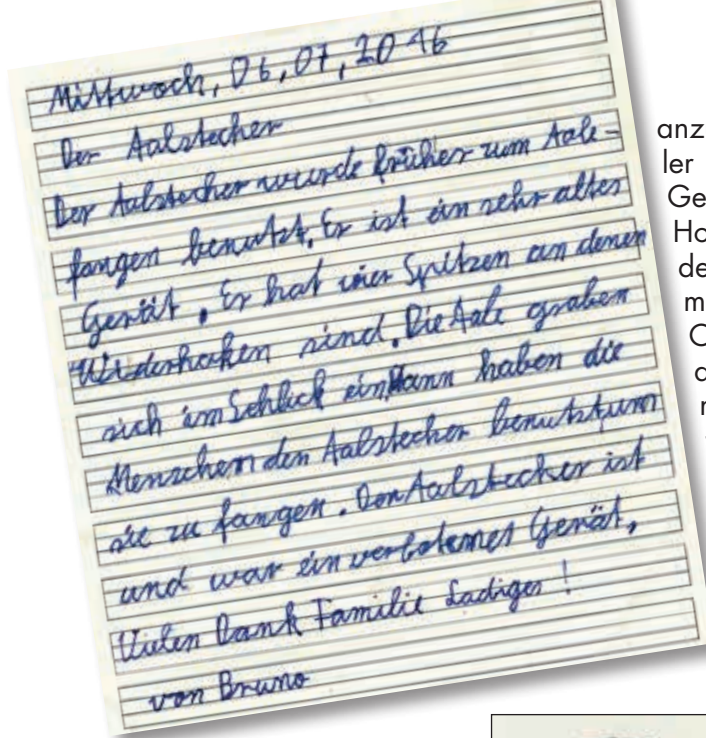 Mittwoch, 06,07,2016
Der Aalstecher
Der Aalstecher wurde früher zum Aale-
fangen benutzt. Er ist ein sehr altes
Gerät. Er hat vier Spitzen an denen
Widerhaken sind. Die Aale graben
sich im Schlick ein. Dann haben die
Menschen den Aalstecher benutzt um
sie zu fangen. Der Aalstecher ist
und war ein verbotenes Gerät,
Vielen Dank Familie Ladiges!
von Bruno
anz
ler
Ge
Ho
de
m